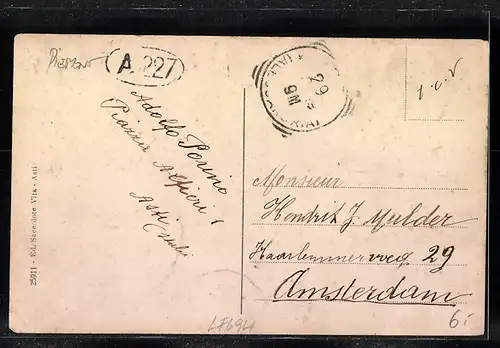 Piemont
A.227
29
Adolfo Porino
Piazza Alfieri 1
Asti
25911 - Ed. Sacerdote Vita - Asti
Monsieur
Hendrik J. Mulder
Haarlemmerweg 29
Amsterdam
6.-